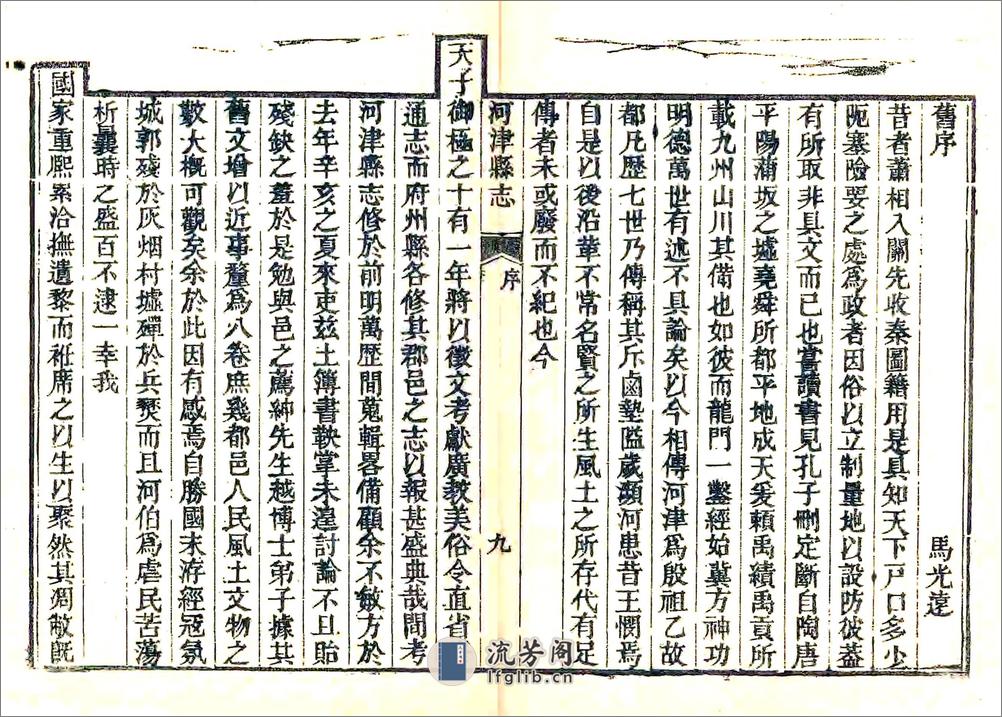 舊序 馬光遠
昔者蕭相入關先收秦圖籍用是具知天下戶口多少
阨塞險要之處爲政者因俗以立制量地以設防彼蓋
有所取非具文而已也嘗讀書見孔子刪定斷自陶唐
平陽蒲坂之墟堯舜所都平地成天爰賴禹績禹貢所
載九州山川其備也如彼而龍門一鑿經始冀方神功
明德萬世有述不具論矣以今相傳河津爲殷祖乙故
都凡歷七世乃傳稱其斥鹵墊隘歲瀕河患昔王憫焉
自是以後沿革不常名賢之所生風土之所存代有足
傳者未或廢而不紀也今
河津縣志 序 九
天子御極之十有一年將以徵文考獻廣敎美俗令直省
通志而府州縣各修其郡邑之志以報甚盛典哉間考
河津縣志修於前明萬歷間蒐輯畧備顧余不敏方於
去年辛亥之夏來吏兹土簿書鞅掌未遑討論不且貽
殘缺之羞於是勉與邑之薦紳先生越博士弟子據其
舊文增以近事釐爲八卷庶幾都邑人民風土文物之
數大槪可觀矣余於此因有感焉自勝國末洊經寇氛
城郭殘於灰烟村墟殫於兵燹而且河伯爲虐民苦蕩
析曩時之盛百不逮一幸我
國家重熙累洽撫遺黎而袵席之以生以聚然其凋敝旣
流芳阁
lfglib.cn